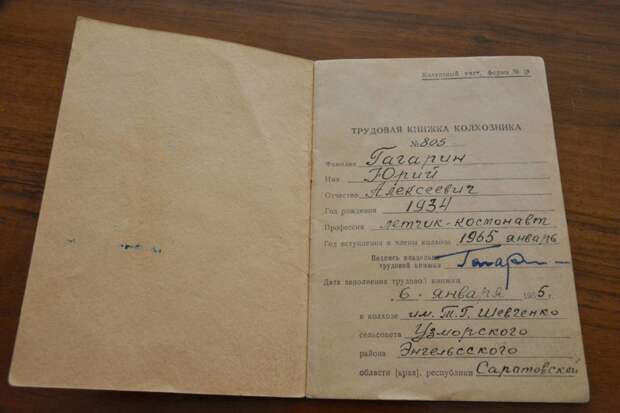 Колхозный учет, форма №
ТРУДОВАЯ КНИЖКА КОЛХОЗНИКА
№ 805
Фамилия Гагарин
Имя Юрий
Отчество Алексеевич
Год рождения 1934
Профессия летчик-космонавт
Год вступления в члены колхоза 1965 январь
Подпись владельца
трудовой книжки Гагарин
Дата заполнения трудовой книжки
6. января 1965 г.
в колхозе им. Т.Г. Шевченко
сельсовета Узморского
района Энгельсского
области [края], республики Саратовской